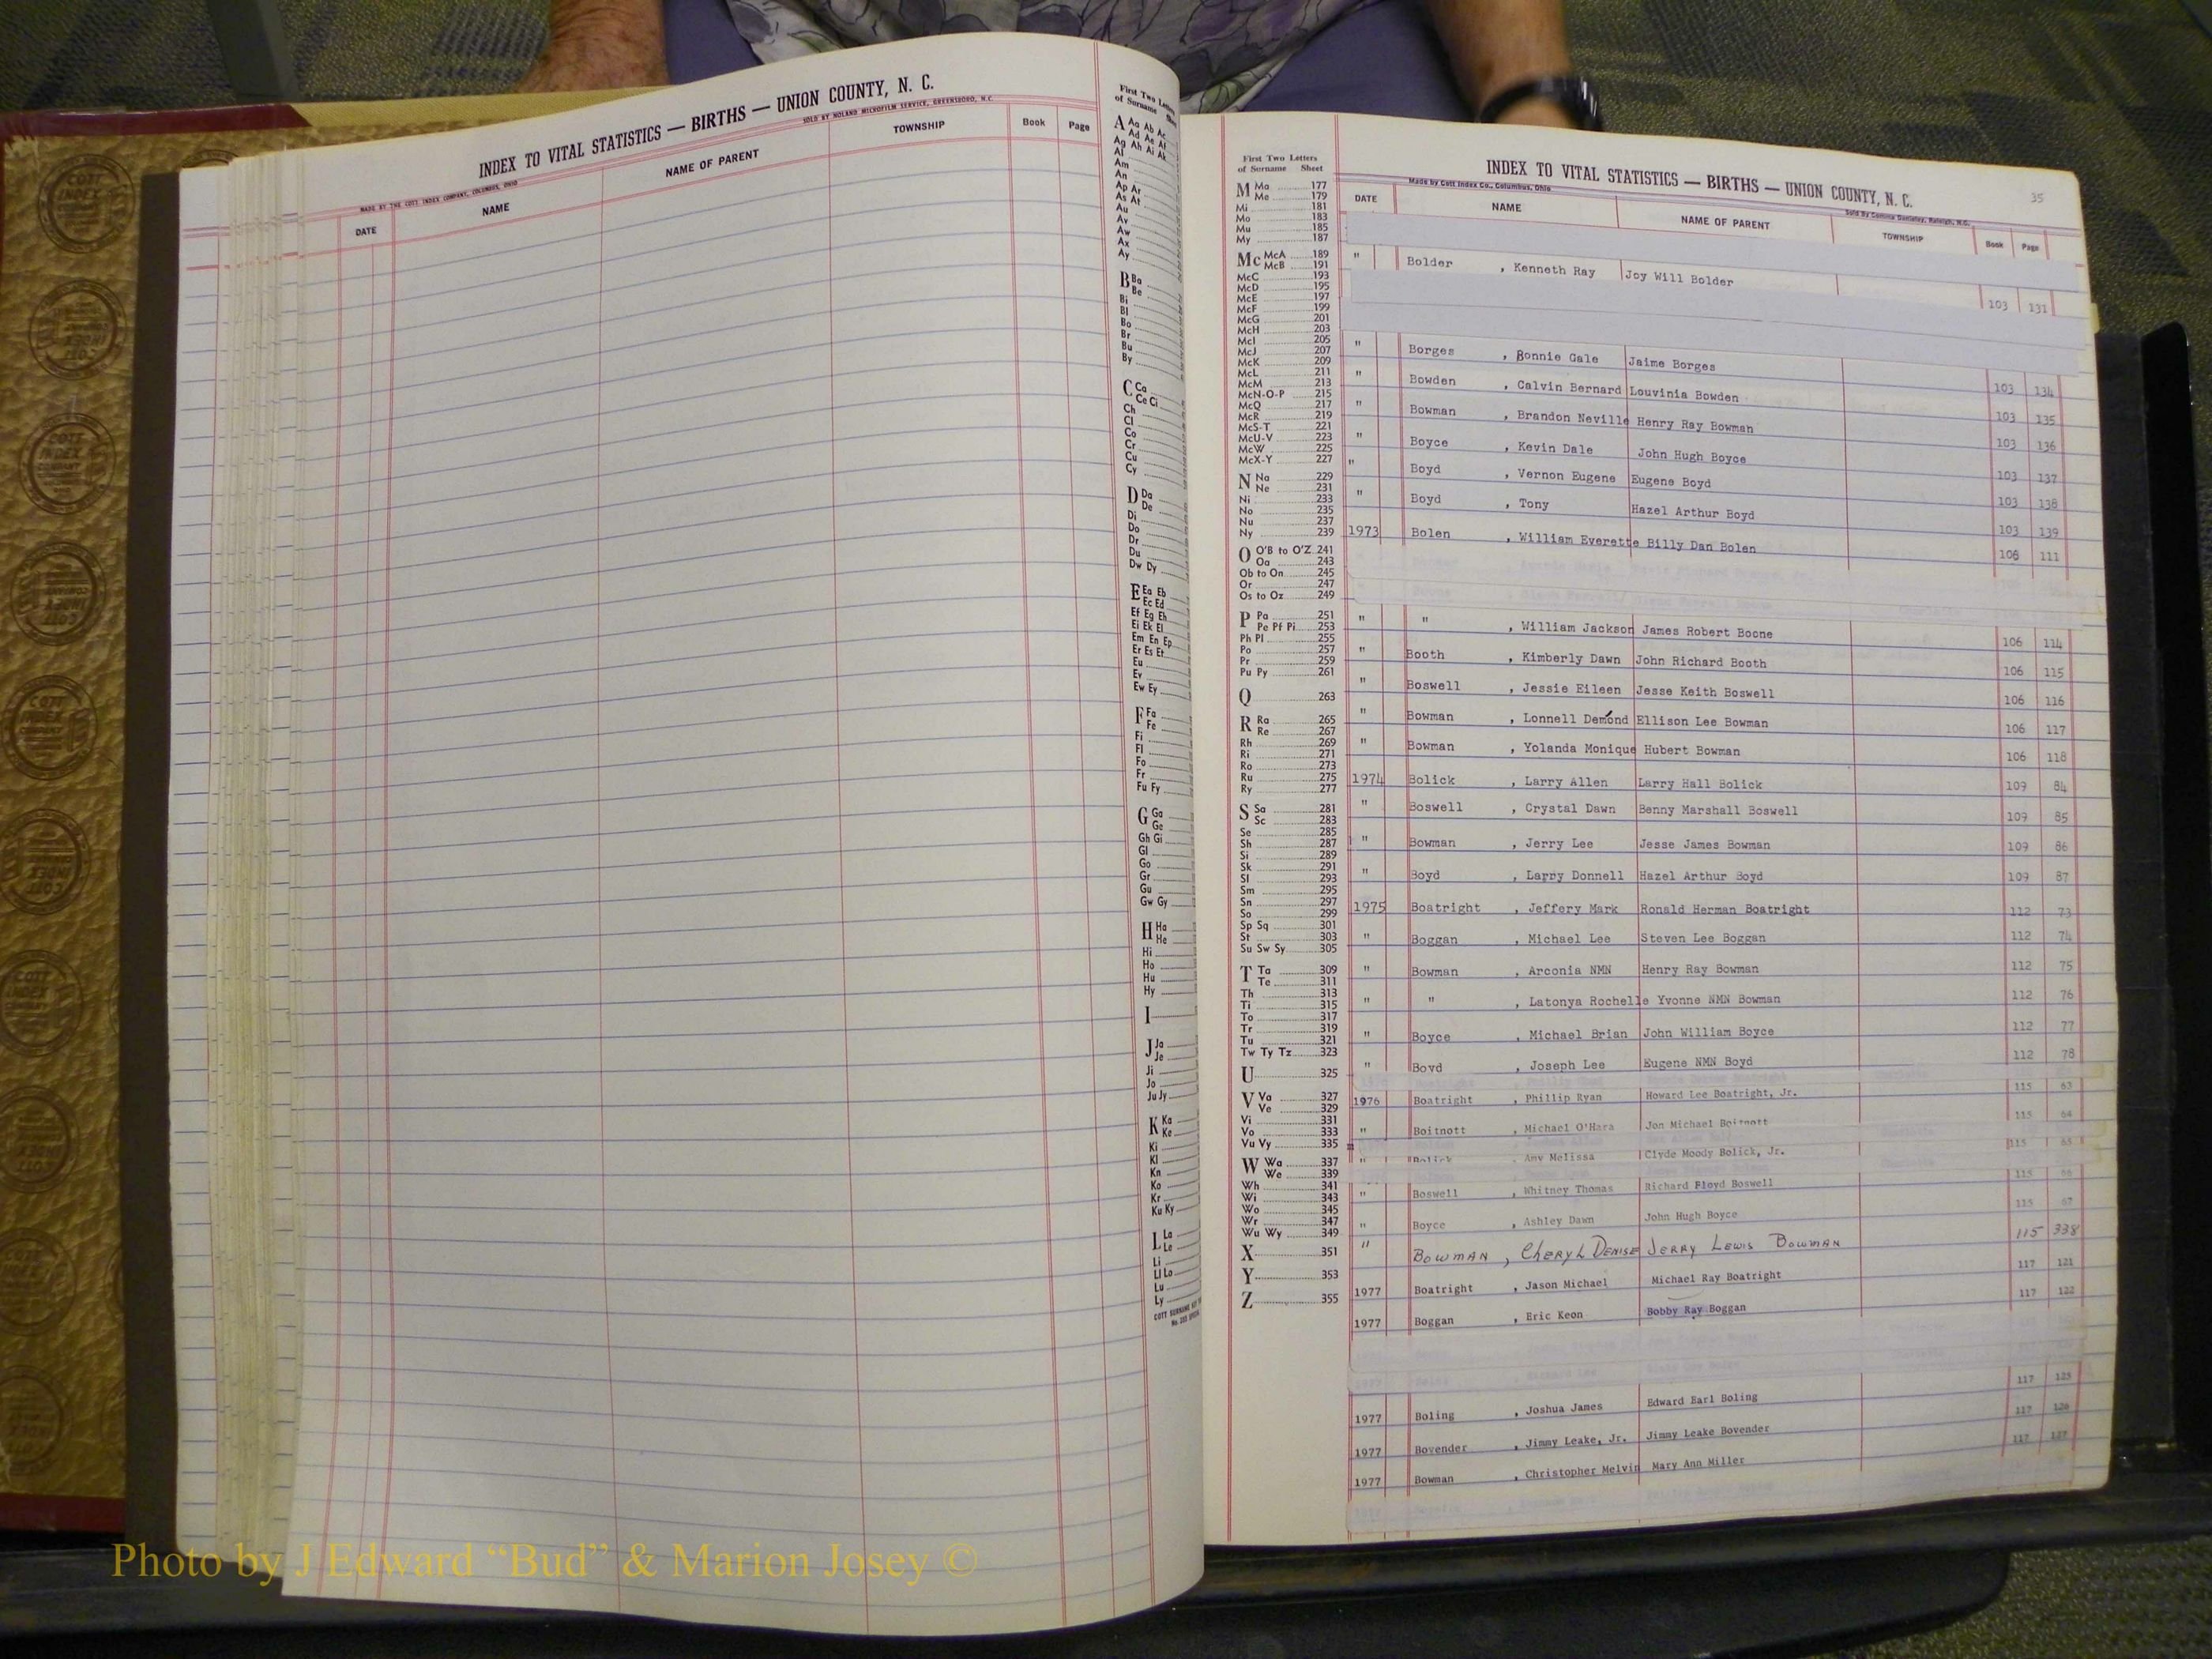 INDEX TO VITAL STATISTICS — BIRTHS — UNION COUNTY, N. C.
MADE BY THE COTT INDEX COMPANY, COLUMBUS, OHIO
SOLD BY NOLAND MICROFILM SERVICE, GREENSBORO, N.C.
DATE NAME NAME OF PARENT TOWNSHIP Book Page
First Two Letters
of Surname
A Aa Ab Ac
Ad Ae Af
Ag Ah Ai Ak
Al
Am
An
Ap Ar
As At
Au
Av
Aw
Ax
Ay
B Ba
Be
Bi
Bl
Bo
Br
Bu
By
C Ca
Ce Ci
Ch
Cl
Co
Cr
Cu
Cy
D Da
De
Di
Do
Dr
Du
Dw Dy
E Ea Eb
Ec Ed
Ef Eg Eh
Ei Ek El
Em En Ep
Er Es Et
Eu
Ev
Ew Ey
F Fa
Fe
Fi
Fl
Fo
Fr
Fu Fy
G Ga
Ge
Gh Gi
Gl
Go
Gr
Gu
Gw Gy
H Ha
He
Hi
Ho
Hu
Hy
I
J Ja
Je
Ji
Jo
Ju Jy
K Ka
Ke
Ki
Kl
Kn
Ko
Kr
Ku Ky
L La
Le
Li
Ll Lo
Lu
Ly
First Two Letters
of Surname Sheet
M Ma 177
Me 179
Mi 181
Mo 183
Mu 185
My 187
Mc McA 189
McB 191
McC 193
McD 195
McE 197
McF 199
McG 201
McH 203
McI 205
McJ 207
McK 209
McL 211
McM 213
McN-O-P 215
McQ 217
McR 219
McS-T 221
McU-V 223
McW 225
McX-Y 227
N Na 229
Ne 231
Ni 233
No 235
Nu 237
Ny 239
O O'B to O'Z 241
Oa 243
Ob to On 245
Or 247
Os to Oz 249
P Pa 251
Pe Pf Pi 253
Ph Pl 255
Po 257
Pr 259
Pu Py 261
Q 263
R Ra 265
Re 267
Rh 269
Ri 271
Ro 273
Ru 275
Ry 277
S Sa 281
Sc 283
Se 285
Sh 287
Si 289
Sk 291
Sl 293
Sm 295
Sn 297
So 299
Sp Sq 301
St 303
Su Sw Sy 305
T Ta 309
Te 311
Th 313
Ti 315
To 317
Tr 319
Tu 321
Tw Ty Tz 323
U 325
V Va 327
Ve 329
Vi 331
Vo 333
Vu Vy 335
W Wa 337
We 339
Wh 341
Wi 343
Wo 345
Wr 347
Wu Wy 349
X 351
Y 353
Z 355
INDEX TO VITAL STATISTICS — BIRTHS — UNION COUNTY, N. C. 35
Made by Cott Index Co., Columbus, Ohio
DATE NAME NAME OF PARENT TOWNSHIP Book Page
" Bolder , Kenneth Ray Joy Will Bolder 103 131
" Borges , Bonnie Gale Jaime Borges 103 134
" Bowden , Calvin Bernard Louvinia Bowden 103 135
" Bowman , Brandon Neville Henry Ray Bowman 103 136
" Boyce , Kevin Dale John Hugh Boyce 103 137
" Boyd , Vernon Eugene Eugene Boyd 103 138
" Boyd , Tony Hazel Arthur Boyd 103 139
1973 Bolen , William Everette Billy Dan Bolen 106 111
" " , William Jackson James Robert Boone 106 114
" Booth , Kimberly Dawn John Richard Booth 106 115
" Boswell , Jessie Eileen Jesse Keith Boswell 106 116
" Bowman , Lonnell Demond Ellison Lee Bowman 106 117
" Bowman , Yolanda Monique Hubert Bowman 106 118
1974 Bolick , Larry Allen Larry Hall Bolick 109 84
" Boswell , Crystal Dawn Benny Marshall Boswell 109 85
" Bowman , Jerry Lee Jesse James Bowman 109 86
" Boyd , Larry Donnell Hazel Arthur Boyd 109 87
1975 Boatright , Jeffery Mark Ronald Herman Boatright 112 73
" Boggan , Michael Lee Steven Lee Boggan 112 74
" Bowman , Arconia NMN Henry Ray Bowman 112 75
" " , Latonya Rochelle Yvonne NMN Bowman 112 76
" Boyce , Michael Brian John William Boyce 112 77
" Boyd , Joseph Lee Eugene NMN Boyd 112 78
1976 Boatright , Phillip Ryan Howard Lee Boatright, Jr. 115 63
" Boitnott , Michael O'Hara Jon Michael Boitnott 115 64
" Bolick , Amy Melissa Clyde Moody Bolick, Jr. 115 65
" Boswell , Whitney Thomas Richard Floyd Boswell 115 66
" Boyce , Ashley Dawn John Hugh Boyce 115 67
" Bowman , Cheryl Denise Jerry Lewis Bowman 115 338
1977 Boatright , Jason Michael Michael Ray Boatright 117 121
1977 Boggan , Eric Keon Bobby Ray Boggan 117 122
1977 Boling , Joshua James Edward Earl Boling 117 125
1977 Bovender , Jimmy Leake, Jr. Jimmy Leake Bovender 117 126
1977 Bowman , Christopher Melvin Mary Ann Miller 117 127
Photo by J Edward “Bud” & Marion Josey ©